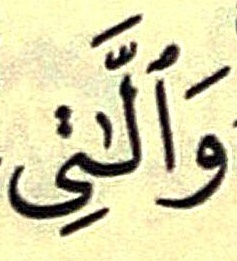 وَٱلَّـٰتِي